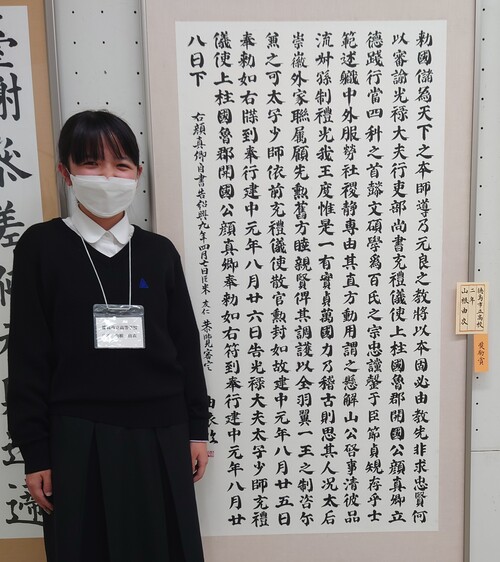 勅國儲為天下之本師導乃元良之教將以本固必由教先非求忠賢何
以審諭光禄大夫行吏部尚書充禮儀使上柱國魯郡開國公顔真卿立
德踐行當四科之首懿文碩學為百氏之宗忠讜罄于臣節貞規存乎士
範述職中外服勞社稷静專由其直方動用謂之懸解山公啓事清彼品
流叔孫制禮光我王度惟是一有實貞萬國力乃稽古則思其人况太后
崇徽外家聯属顧先勲舊方睦親賢俾其調護以全羽翼一王之制咨尔
兼之可太子少師依前充禮儀使散官勲封如故建中元年八月廿五日
奉勅如右牒到奉行建中元年八月廿六日告光禄大夫太子少師充禮
儀使上柱國魯郡開國公顔真卿奉勅如右符到奉行建中元年八月廿
八日下
右顔真卿自書告紹興九年四月七日臣米友仁恭覧審定
徳島市立高校
二年
山根由衣
奨励賞